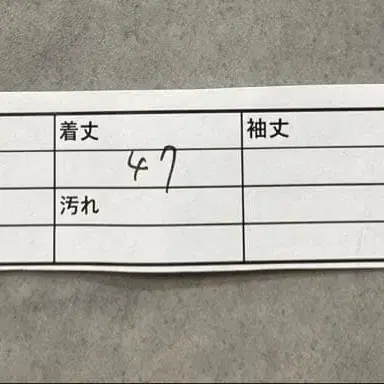 着丈 袖丈
47
汚れ